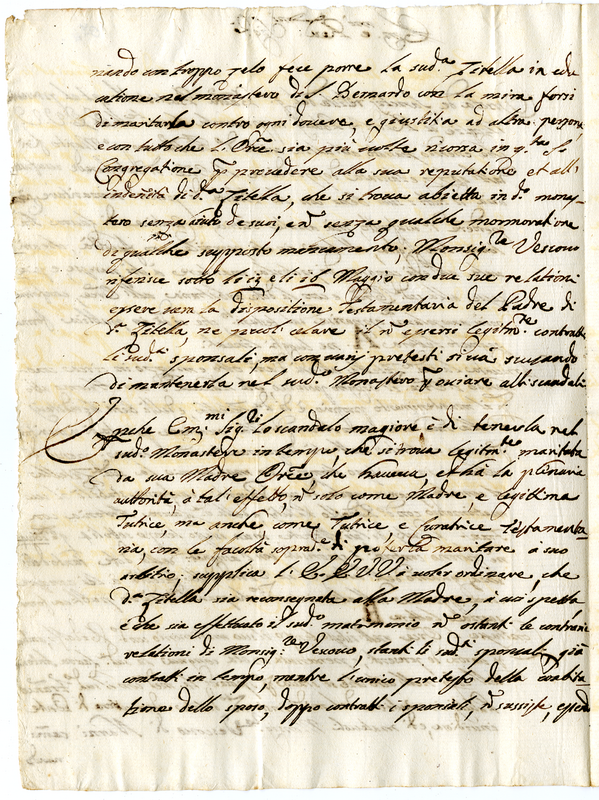 nando con troppo zelo fece porre la sud.a Zitella in edu
catione nel monastero di S. Bernardo con la mira forsi
di maritarla contro ogni dovere, e giustitia ad altra persona
e con tutto che l'Or.ce sia più volte ricorsa in q.ta
Congregatione p provedere alla sua reputatione et all'
indennità di d.a Zitella, che si trova abietta in d.o mona-
stero senza aiuto de suoi, e senza qualche mormoratione
di qualche supposto mancamento, Monsig.re Vescovo
riferisce sotto li e li 16 Maggio con due sue relationi
essere vera la dispositione testamentaria del Padre di
d.a Zitella, ne puol celare il n essersi legitim.te contratti
li sud.i sponsali, ma con varij pretesti si và scusando
di mantenerla nel sud.o Monastero p oviare alli scandali
Perche Em.mi Sig.ri lo scandalo magiore è di tenerla nel
sud.o Monastero in tempo, che si trova legitim.te maritata
da sua Madre Or.ce, che haveva, et hà la plenaria
autorità, à tal effetto, n solo come Madre, e legittima
Tutrice, ma anche come Tutrice, e Curatrice testamenta
ria, con le facoltà soprad.e di poterla maritare a suo
arbitrio. supplica l' EE VV à voler ordinare, che
d.a Zitella sia reconsegnata alla Madre, à cui spetta
e che sia effettuato il sud.o matrimonio n ostanti le contrarie
relationi di Monsig.re Vescovo, stanti li sud.i sponsali già
contratti in tempo, mentre l'unico pretesto della coabita
tione dello sposo, doppo contratti i sponsali, n sussiste, essend